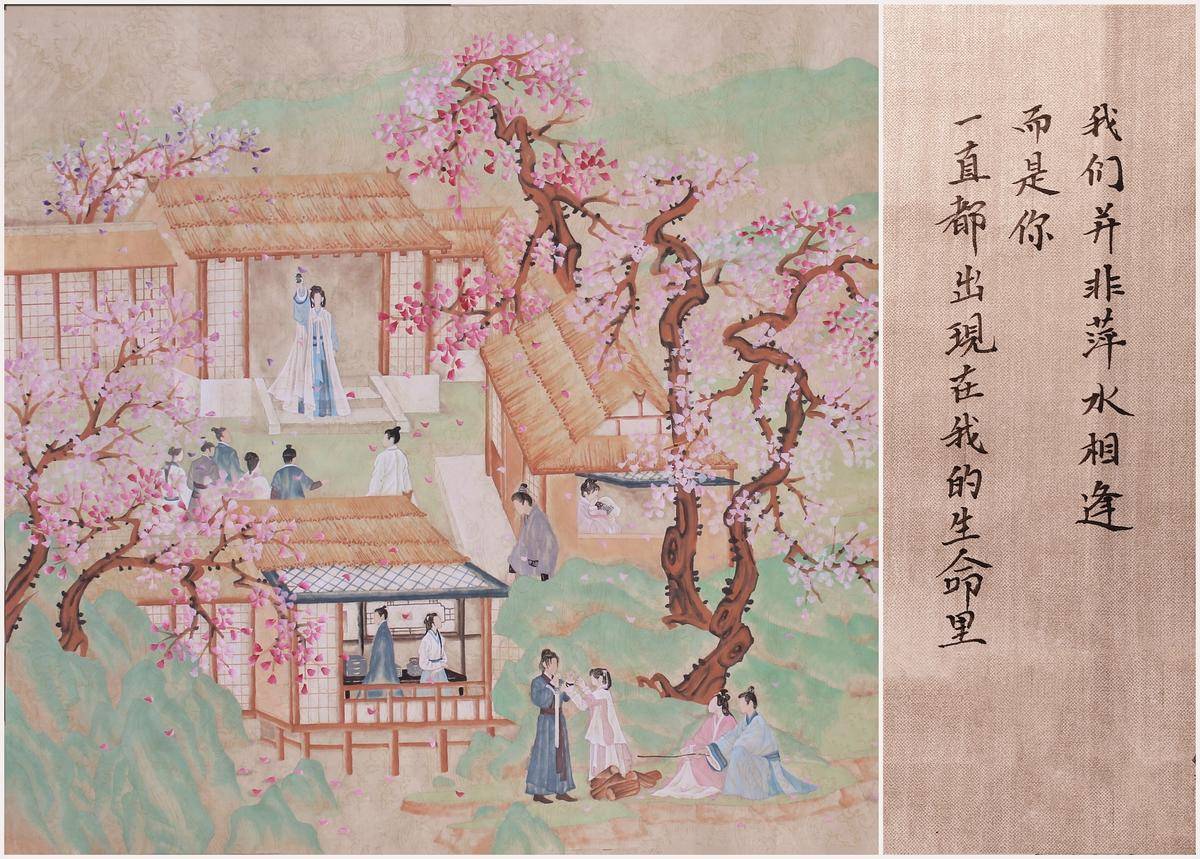 我们并非萍水相逢
而是你
一直都出現在我的生命里